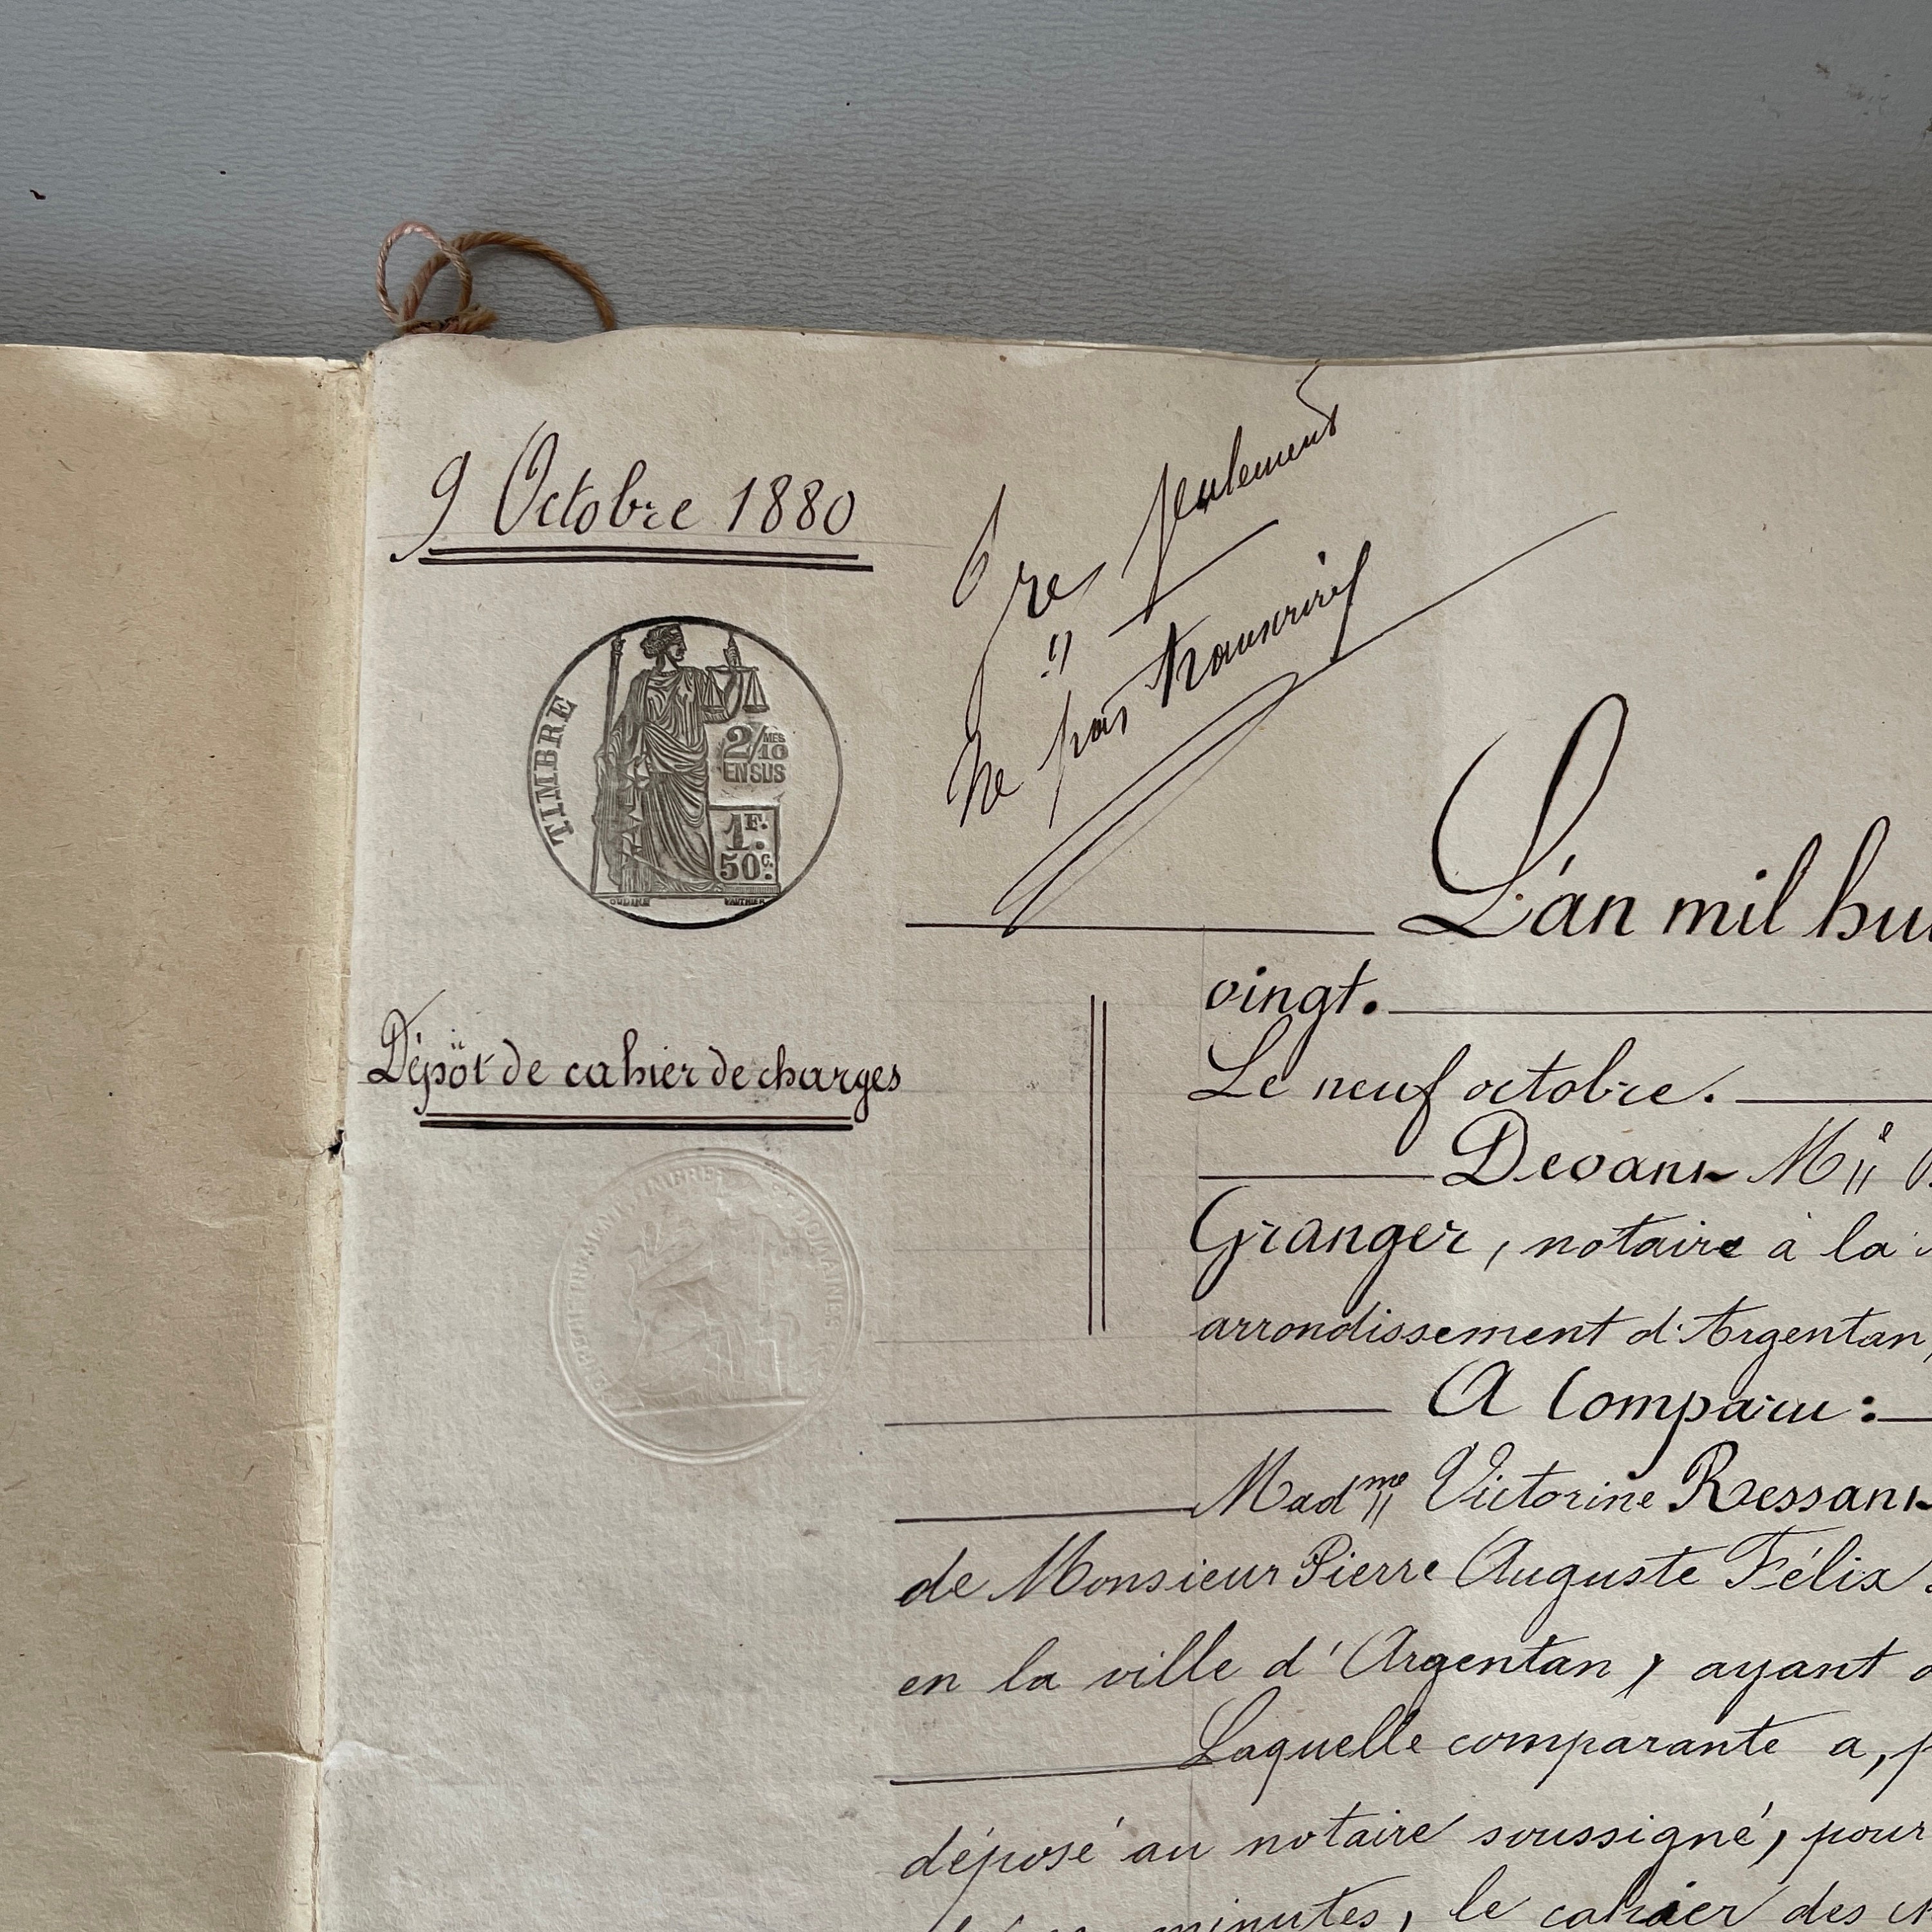 9 Octobre 1880
seulement
Ne pas transcrire
TIMBRE
2/10 MES
EN SUS
1F.
50C.
OUDINÉ
L'an mil hui
vingt.
Dépôt de cahier de charges
Le neuf octobre.
Devant Me
Granger, notaire à la
arrondissement d'Argentan,
A Comparu :
Madme Victorine Ressant
de Monsieur Pierre Auguste Félix
en la ville d'Argentan, ayant
Laquelle comparante a,
déposé au notaire soussigné, pour
minutes, le cahier des